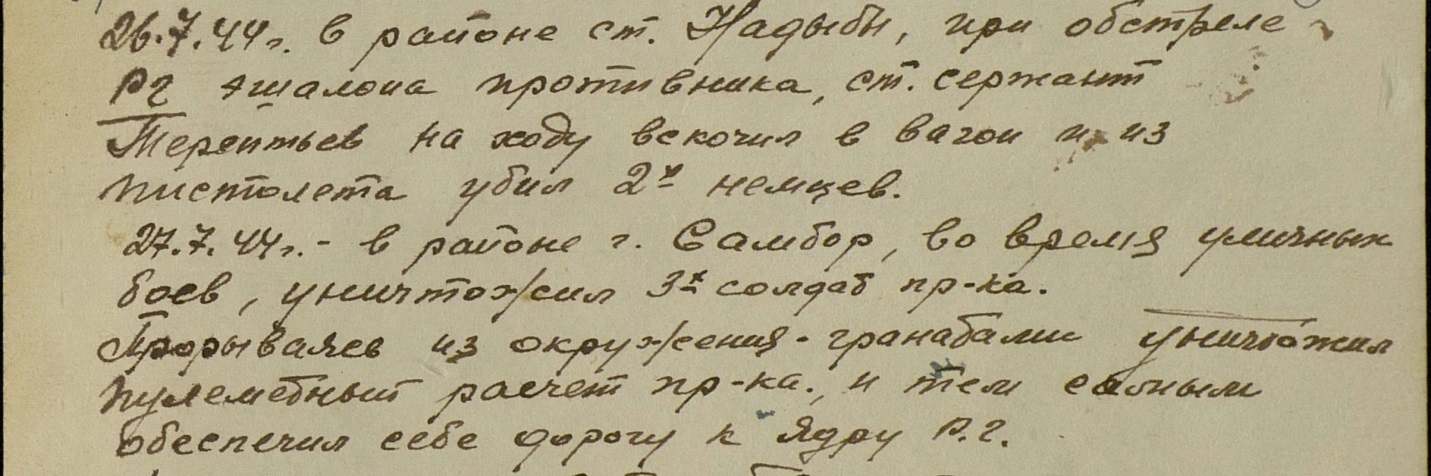 26.7.44г. в районе ст. Надыбы, при обстреле
РГ эшалона противника, ст. сержант
Терентьев на ходу вскочил в вагон и из
пистолета убил 2х немцев.
27.7.44г. - в районе г. Самбор, во время уличных
боев, уничтожил 3х солдат пр-ка.
Прорываясь из окружения - гранатами уничтожил
пулеметный расчет пр-ка., и тем самым
обеспечил себе дорогу к ядру Р.Г.